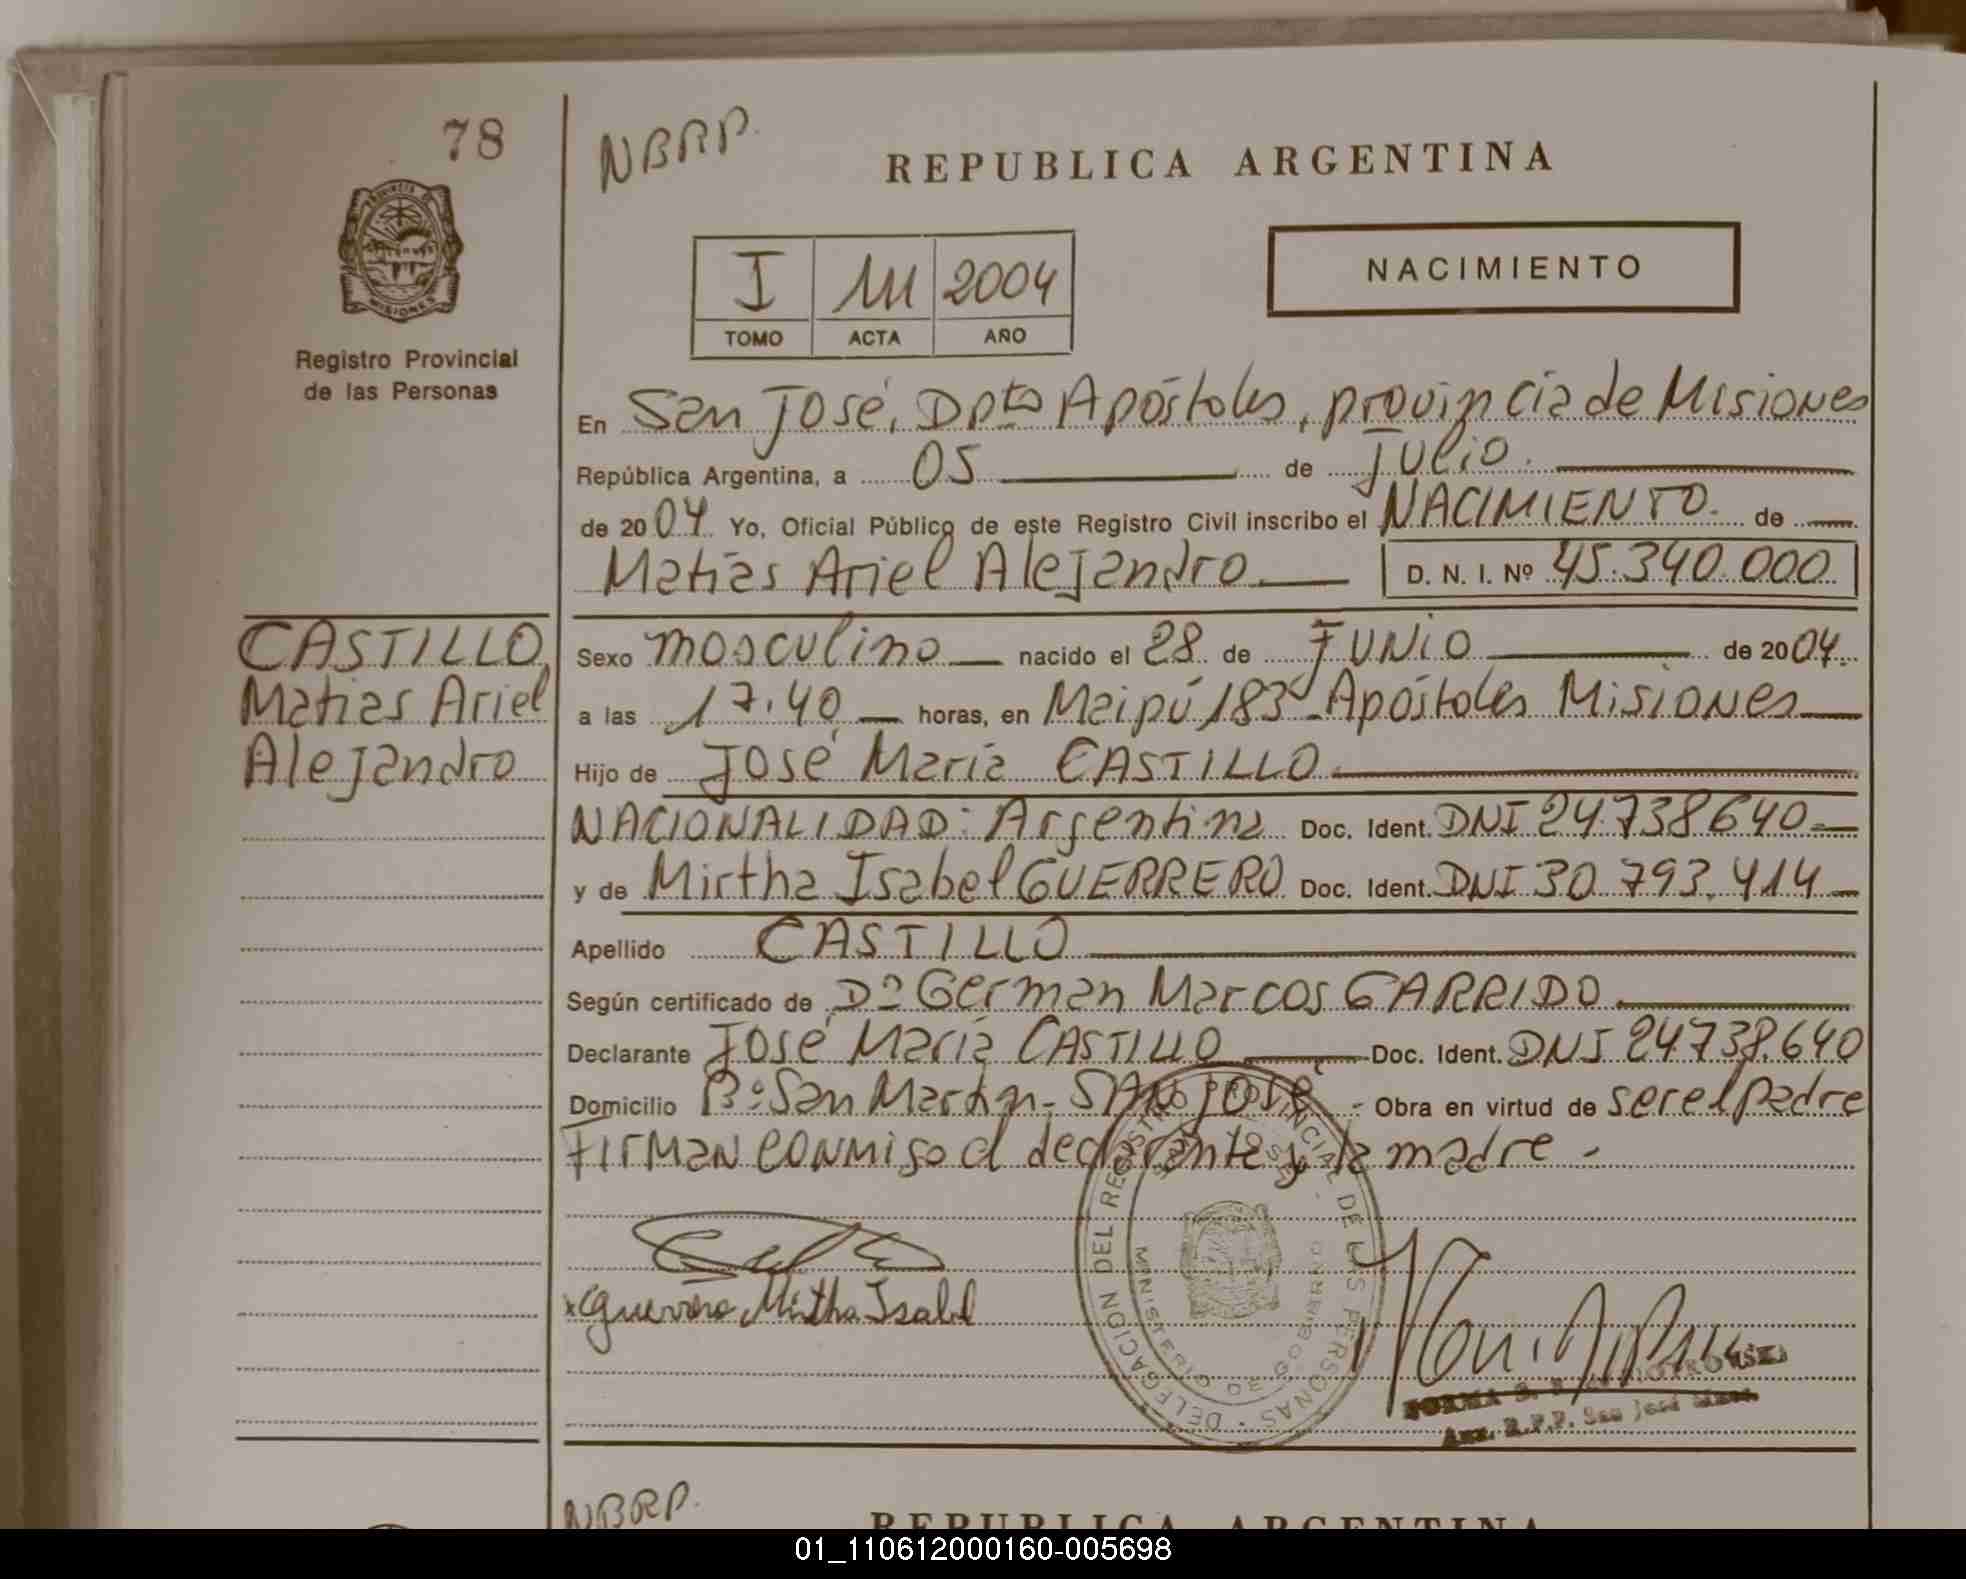 78
NBRP.
REPUBLICA ARGENTINA
I 111 2004
TOMO ACTA AÑO
NACIMIENTO
PROVINCIA DE
MISIONES
Registro Provincial
de las Personas
En San José, Dpto Apóstoles, provincia de Misiones
República Argentina, a 05 de Julio.
de 2004 Yo, Oficial Público de este Registro Civil inscribo el NACIMIENTO. de
Matías Ariel Alejandro D. N. I. Nº 45.340.000
CASTILLO,
Matias Ariel
Alejandro
Sexo masculino nacido el 28 de JUNIO de 2004.
a las 17.40 horas, en Maipú 183 - Apóstoles Misiones
Hijo de José María CASTILLO
NACIONALIDAD: Argentina Doc. Ident. DNI 24738640
y de Mirtha Isabel GUERRERO Doc. Ident. DNI 30 793.414
Apellido CASTILLO
Según certificado de Dº German Marcos GARRIDO
Declarante José María CASTILLO Doc. Ident. DNI 24738.640
Domicilio Bº San Martin - SAN JOSÉ - Obra en virtud de ser el padre
FIRMAN CONMIGO el declarante y la madre -
x Guerrero Mirtha Isabel
DELEGACION DEL REGISTRO PROVINCIAL DE LAS PERSONAS
SAN JOSE
MINISTERIO DE GOBIERNO
NORMA B.
Aux. R.P.P. San José Mnes.
NBRP.
REPUBLICA ARGENTINA
01_110612000160-005698